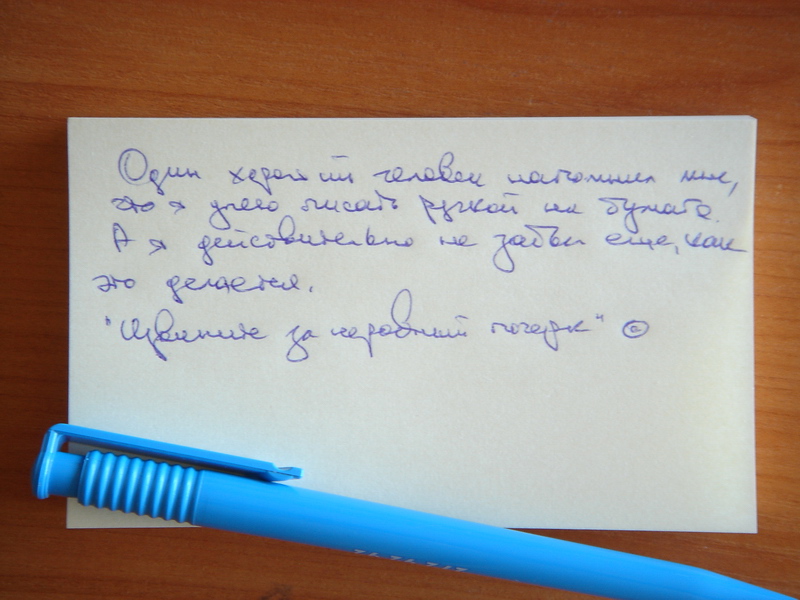 Один хороший человек напомнил мне,
что я умею писать ручкой на бумаге.
А я действительно не забыл еще, как
это делается.
"Извините за неровный почерк" ©